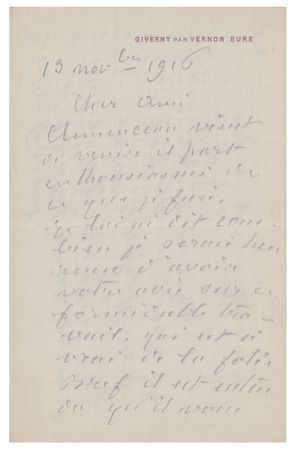 GIVERNY PAR VERNON EURE
13 novbre 1916
Cher ami
Clemenceau vient
de venir il part
enthousiasmé de
ce que je fais,
je lui ai dit com-
bien je serais heu
reux d'avoir
votre avis sur ce
formidable tra-
vail, qui est à
vrai de la folie
Bref il est enten
du qu'il vous